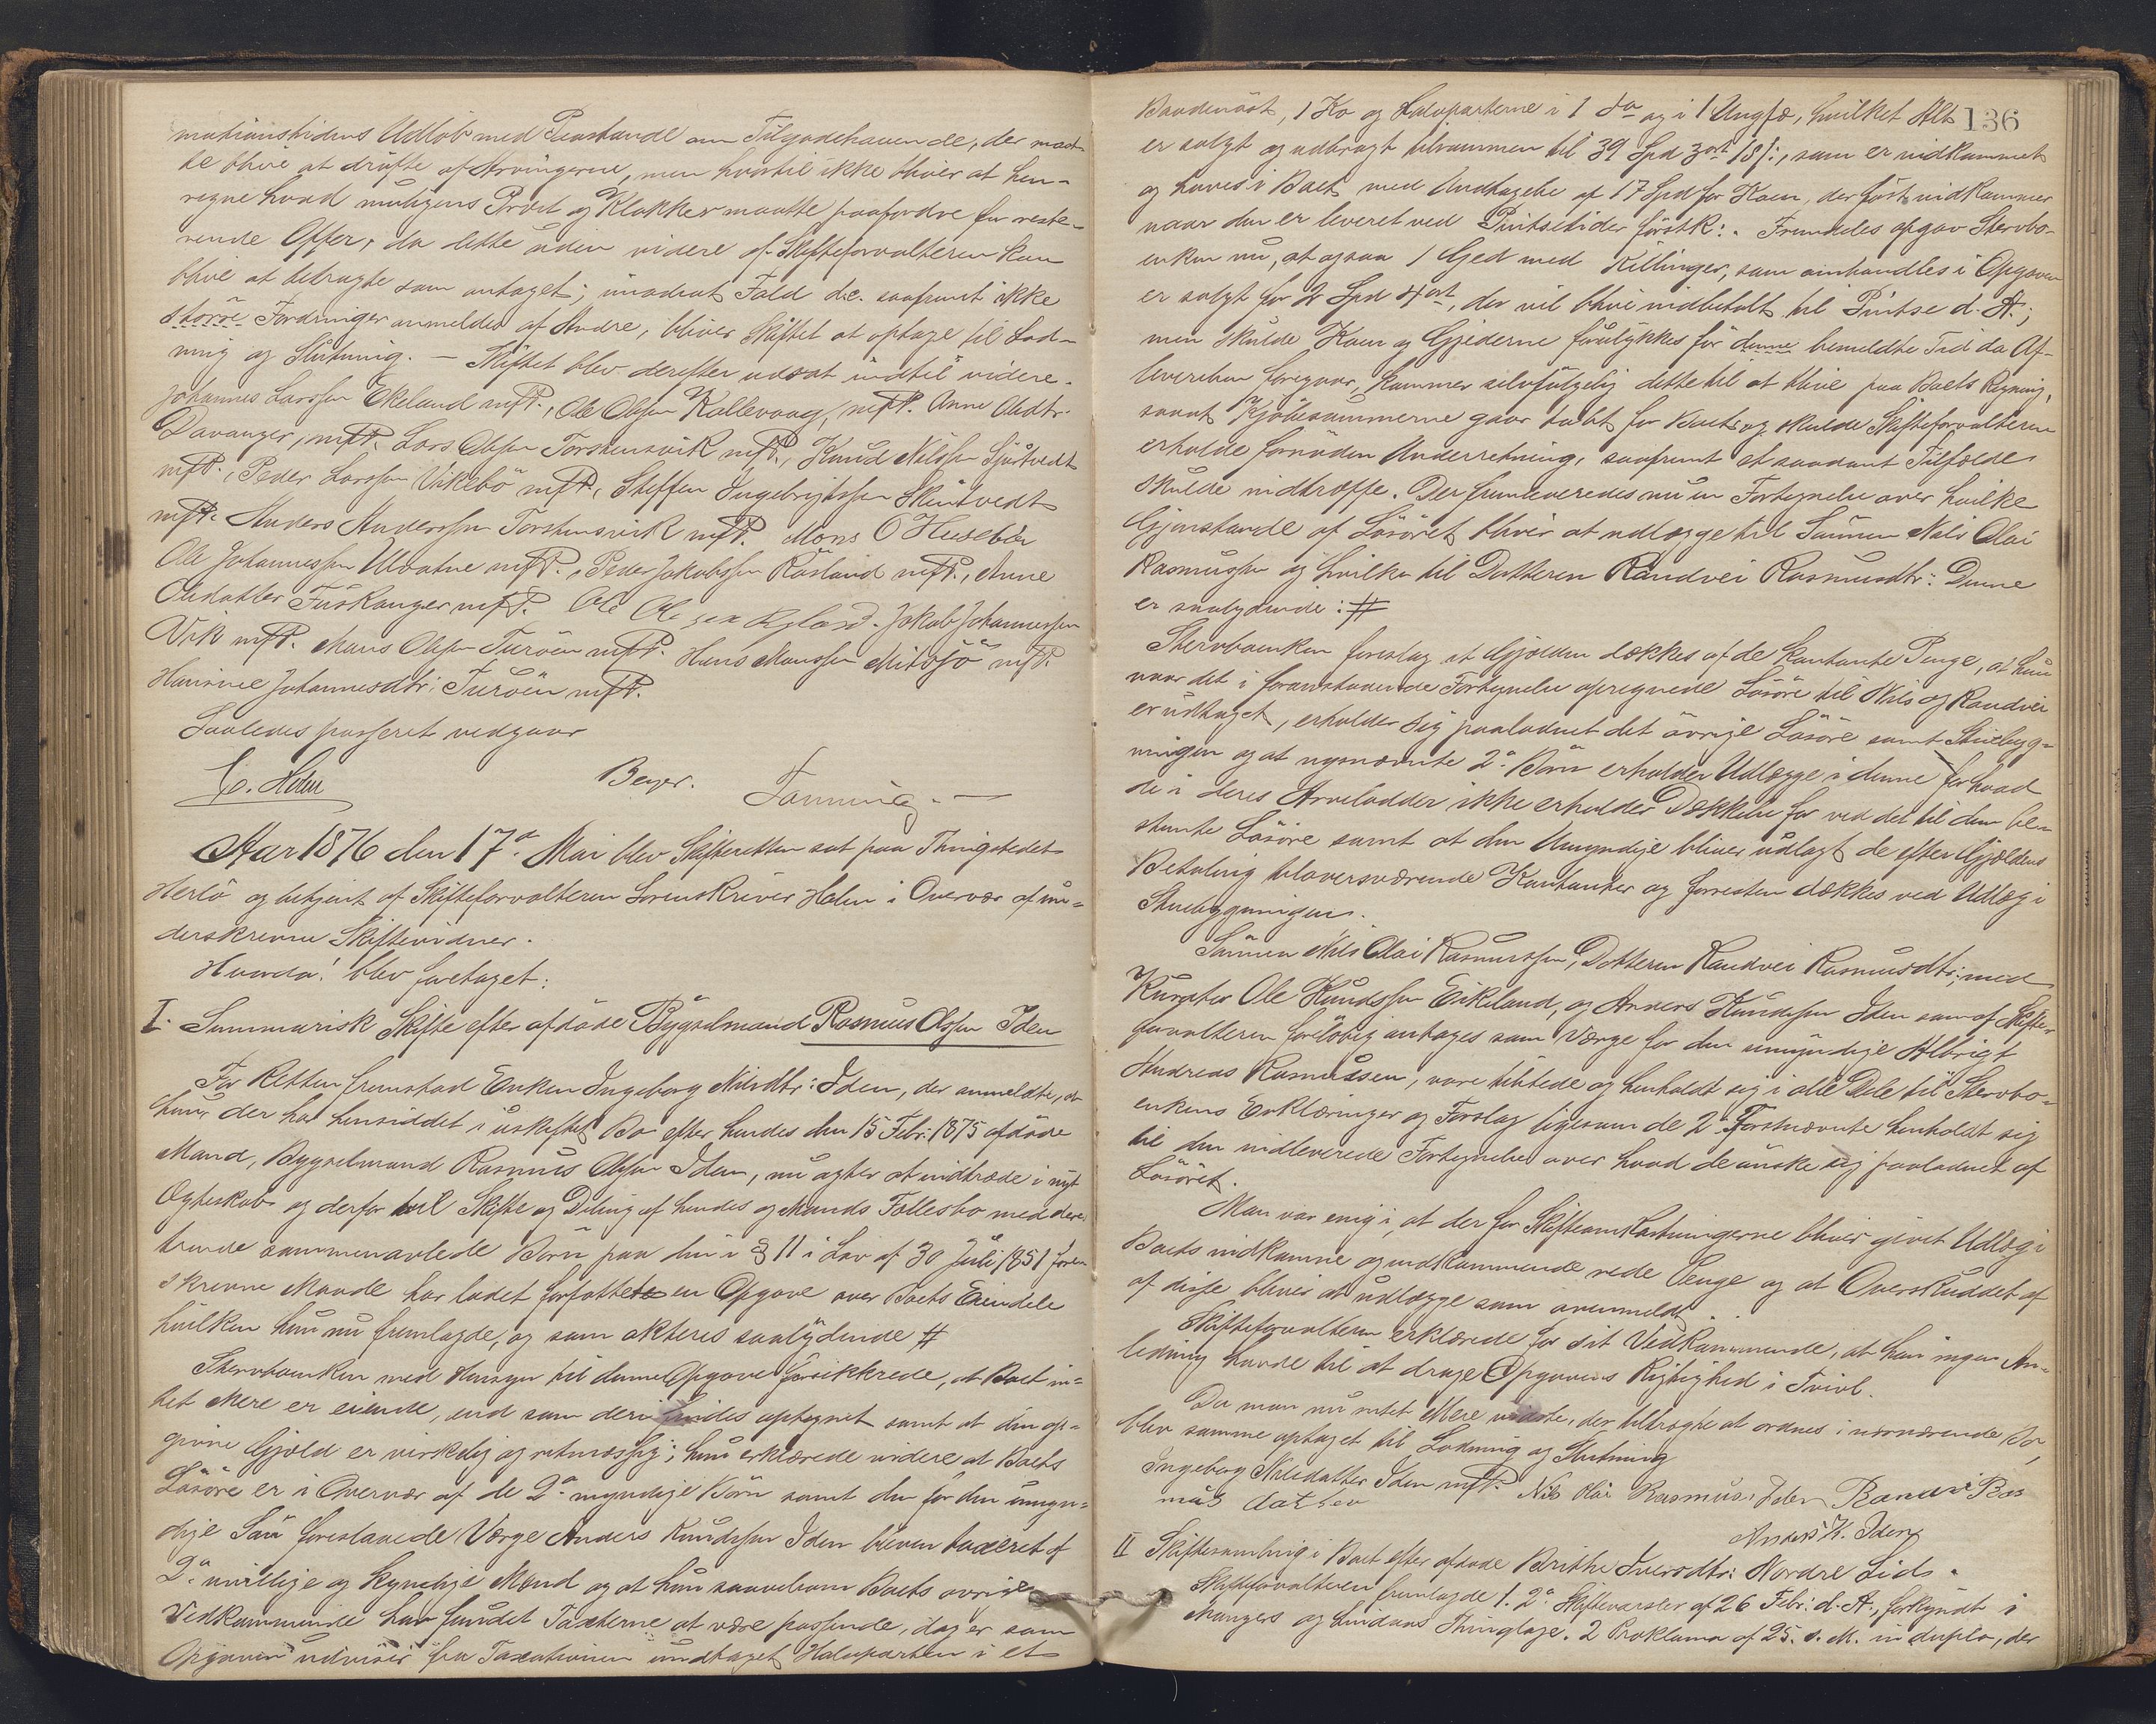 mationstidens Udløb med Paastande om Tilgodehavende, der maat-
te blive at drøfte af Arvingerne, men hvortil ikke bliver at hen-
regne hvad muligens Præst og Klokker maatte paafordre for reste-
rende Offer, da dette uden videre af Skifteforvalteren kan
blive at betragte som antaget; i modsat Fald d.e. saafremt ikke
større Fordringer anmeldes af Andre, bliver Skiftet at optage til Lod-
ning og Slutning. — Skiftet blev derefter udsat indtil videre.
Johannes Larssen Ekeland mfP., Ole Olsen Kallevaag, mfP. Anne Olsdtr.
Davanger, mfP. Lars Olsen Torstensvik mfP., Knud Nilssen Sjurtvedt
mfP., Peder Larssen Vikebø mfP., Steffen Ingebrigtssen Skintvedt
mfP. Anders Anderssen Torstensvik mfP. Mons O Husebøe
Ole Johannessen Ulvatne mfP., Peder Jakobssen Røsland mfP., Anne
Olsdatter Fuskanger mfP. Ole Olsen Ryland. Jakob Johannessen
Vik mfP. Mons Olsen Turøen mfP. Hans Monssen Misøjø mfP.
Hansine Johannesdtr: Turøen mfP.
Saaledes passeret vedgaar
C. Holm Beyer. Tanning. —
Aar 1876 den 17de Mai blev Skifteretten sat paa Thingstedet
Herlø og betjent af Skifteforvalteren Sorenskriver Holm i Overvær af un-
derskrevne Skiftevidner.
Hvorda! blev foretaget:
I. Summarisk Skifte efter afdøde Bygselmand Rasmus Olssen Iden
For Retten fremstod Enken Ingeborg Nilsdtr: Iden, der anmeldte, at
hun, der har hensiddet i uskiftet Bo efter hendes den 15 Febr: 1875 afdøde
Mand, Bygselmand Rasmus Olssen Iden, nu agter at indtræde i nyt
Ægteskab og derfor til Skifte og Deling af hendes og Mands Fællesbo med deres
trende sammenavlede Børn paa den i § 11 i Lov af 30 Juli 1851 fore-
skrevne Maade har ladet forfatte en Opgave over Boets Eiendele
hvilken hun nu fremlagde, og som akteres saalydende #
Stervboenken med Hensyn til denne Opgave forsikkrede, at Boet in-
tet Mere er eiende, end som deri findes optegnet samt at den op-
givne Gjæld er virkelig og retmæssig; hun erklærede videre at Boets
Løsøre er i Overvær af de 2de myndige Børn samt den for den umyn-
dige Søn foreslaaede Værge Anders Knudssen Iden bleven taxeret af
2de uvillige og kyndige Mænd og at hun saavelsom Boets øvrige
Vedkommende har fundet Taxterne at være passende, dog er som
Opgaven udviser fra Taxationen undtaget Halvparten i et
136
Baadenøst, 1 Ko og Halvparterne i 1 do og i 1 Ungfæ, hvilket Alt
er solgt og udbragt tilsammen til 39 Spd 3 ort 18 /:, som er indkommet
og haves i Boet med Undtagelse af 17 Spd for Koen, der først indkommer
naar den er leveret ved Pintsetider førstk:. Fremdeles opgav Stervbo-
enken nu, at ogsaa 1 Ged med Killinger, som omhandles i Opgaven
er solgt for 2 Spd 4 ort, der vil blive indbetalt til Pintse d. A.;
men skulde Koen og Gjederne forulykkes før denne bemeldte Tid da Af-
leveringen foregaar, kommer selvfølgelig dette til at blive paa Boets Regning,
samt Kjøbesummerne gaar tabt for Boet og skulde Skifteforvalteren
erholde fornøden Underretning, saafremt et saadant Tilfælde
skulde indtræffe. Der fremleveredes nu en Fortegnelse over hvilke
Gjenstande af Løsøret bliver at udlægge til Sønnen Nils Olai
Rasmussen og hvilke til Datteren Randvei Rasmusdtr: Denne
er saalydende: #
Stervboenken foreslog at Gjælden dækkes af de kontante Penge, at hun
naar det i foranstaaende Fortegnelse opregnede Løsøre til Nils og Randvei
er udtaget, erholder sig paalodnet det øvrige Løsøre samt Stuebyg-
ningen og at nysnævnte 2de Børn erholder Udlægge i denne for hvad
de i deres Arvelodder ikke erholder Dækkelse for ved det til dem be-
stemte Løsøre samt at den Umyndige bliver udlagt de efter Gjældens
Betaling tiloversværende Kontanter og forresten dækkes ved Udlæg i
Stuebygningen.
Sønnen Nils Olai Rasmussen, Datteren Randvei Rasmusdtr: med
Kurator Ole Knudssen Eikeland, og Anders Knudssen Iden som af Skifte-
forvalteren foreløbig antages som Værge for den umyndige Albrigt
Andreas Rasmussen, vare tilstede og henholdt sig i alle Dele til Stervbo-
enkens Erklæringer og Forslag ligesom de 2 Førstnævnte henholdt sig
til den indleverede Fortegnelse over hvad de ønske sig paalodnet af
Løsøret.
Man var enig i, at der for Skifteomkostningerne bliver givet Udlæg i
Boets indkomne og indkommende rede Penge og at Overskuddet af
af disse bliver at udlægge som ovenmeldt.
Skifteforvalteren erklærede for sit Vedkommende, at han ingen An-
ledning havde til at drage Opgavens Rigtighed i Tvivl.
Da man nu intet Mere vidste, der tiltrægte at ordnes i nærværende Bo,
blev samme optaget til Lodning og Slutning
Ingeborg Nilsdatter Iden mfP. Nils Olai Rasmus: Iden Randvei Ras
mus datter
Anders K. Iden
II Skiftesamling i Boet efter afdøde Brithe Iversdtr: Nordre Lids.
Skifteforvalteren fremlagde 1. 2de Skiftevarsler af 26 Febr: d. A., forkyndt i
Mangers og Lindaas Thinglage. 2 Proklama af 25. s. M. in duplo, der